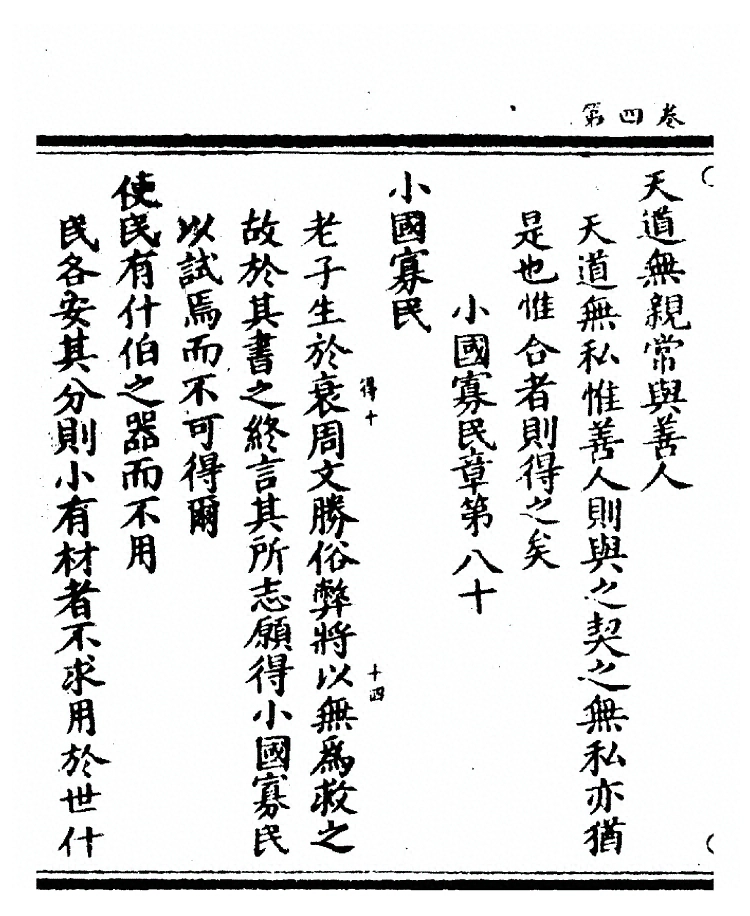 第四卷
天道無親常與善人
天道無私惟善人則與之契之無私亦猶
是也惟合者則得之矣
小國寡民章第八十
小國寡民
得十
十四
老子生於衰周文勝俗弊將以無爲救之
故於其書之終言其所志願得小國寡民
以試焉而不可得爾
使民有什伯之器而不用
民各安其分則小有材者不求用於世什